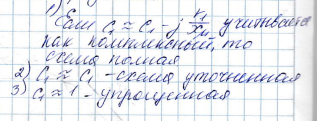 1) Если C₁ ≈ C₁ - j r₁/xμ учитывается
как комплексный, то
схема полная
2) C₁ ≈ C₁ - схема уточненная
3) C₁ ≈ 1 - упрощенная